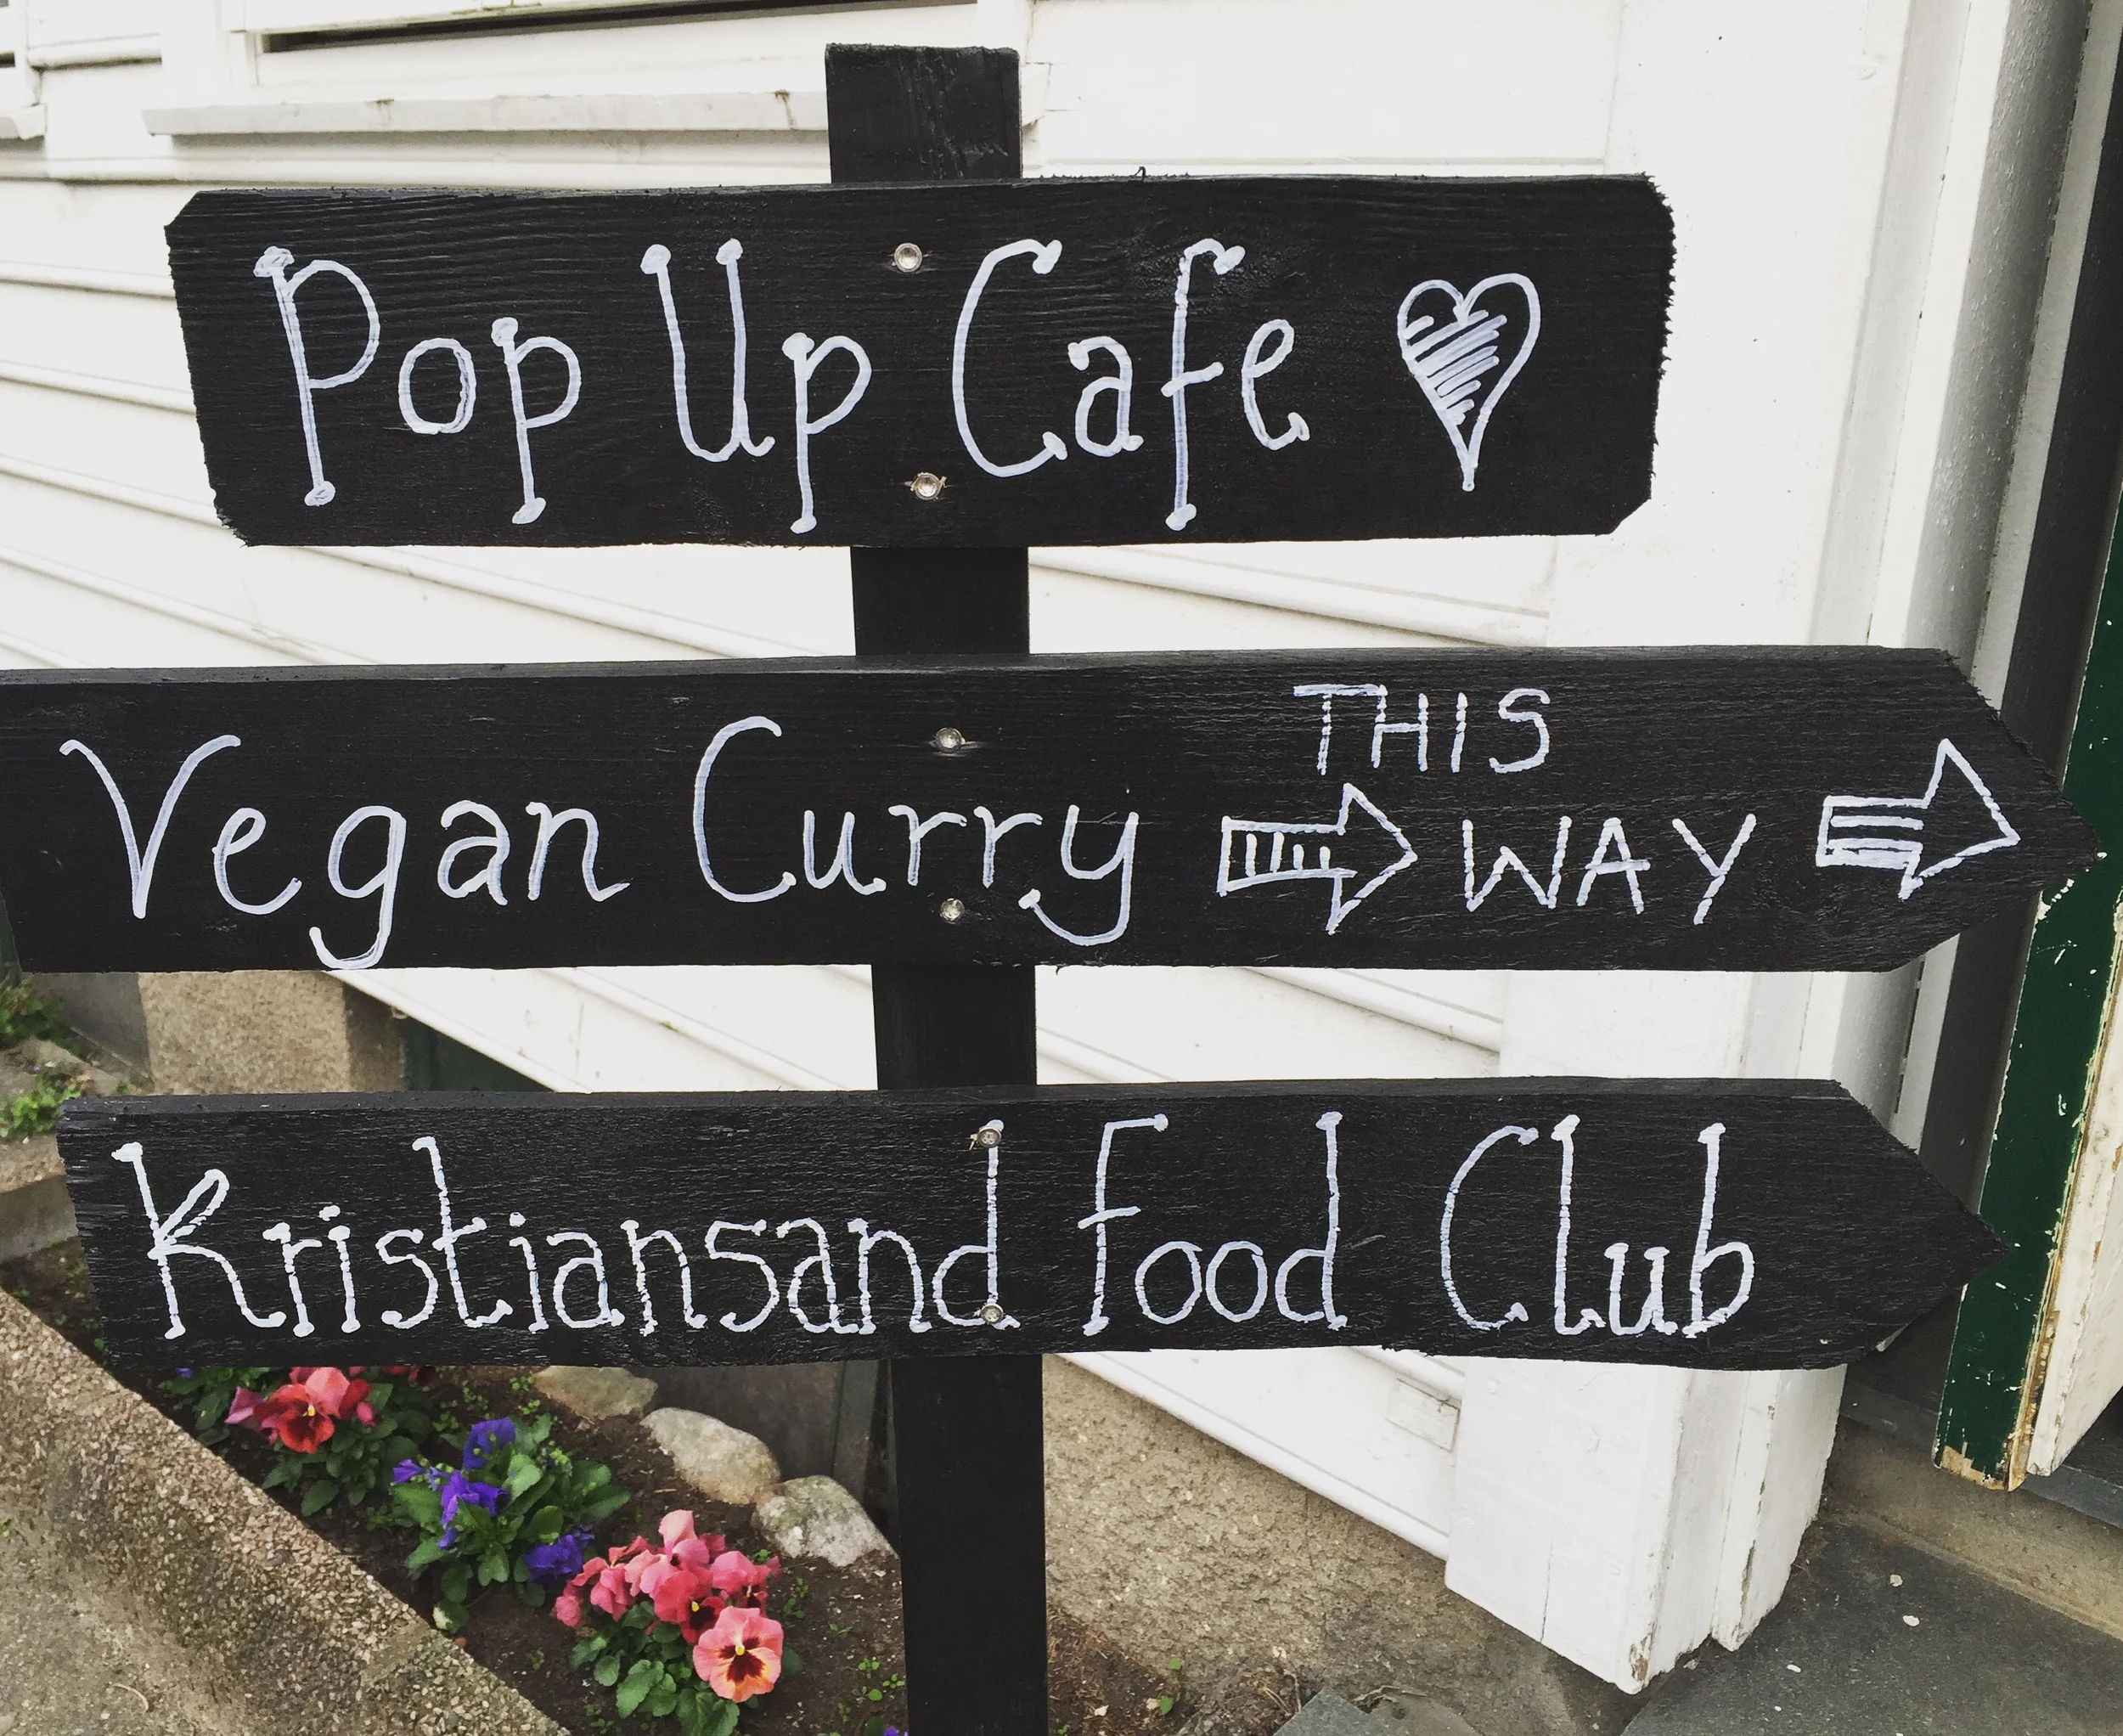 Pop Up Cafe
Vegan Curry THIS WAY
Kristiansand Food Club